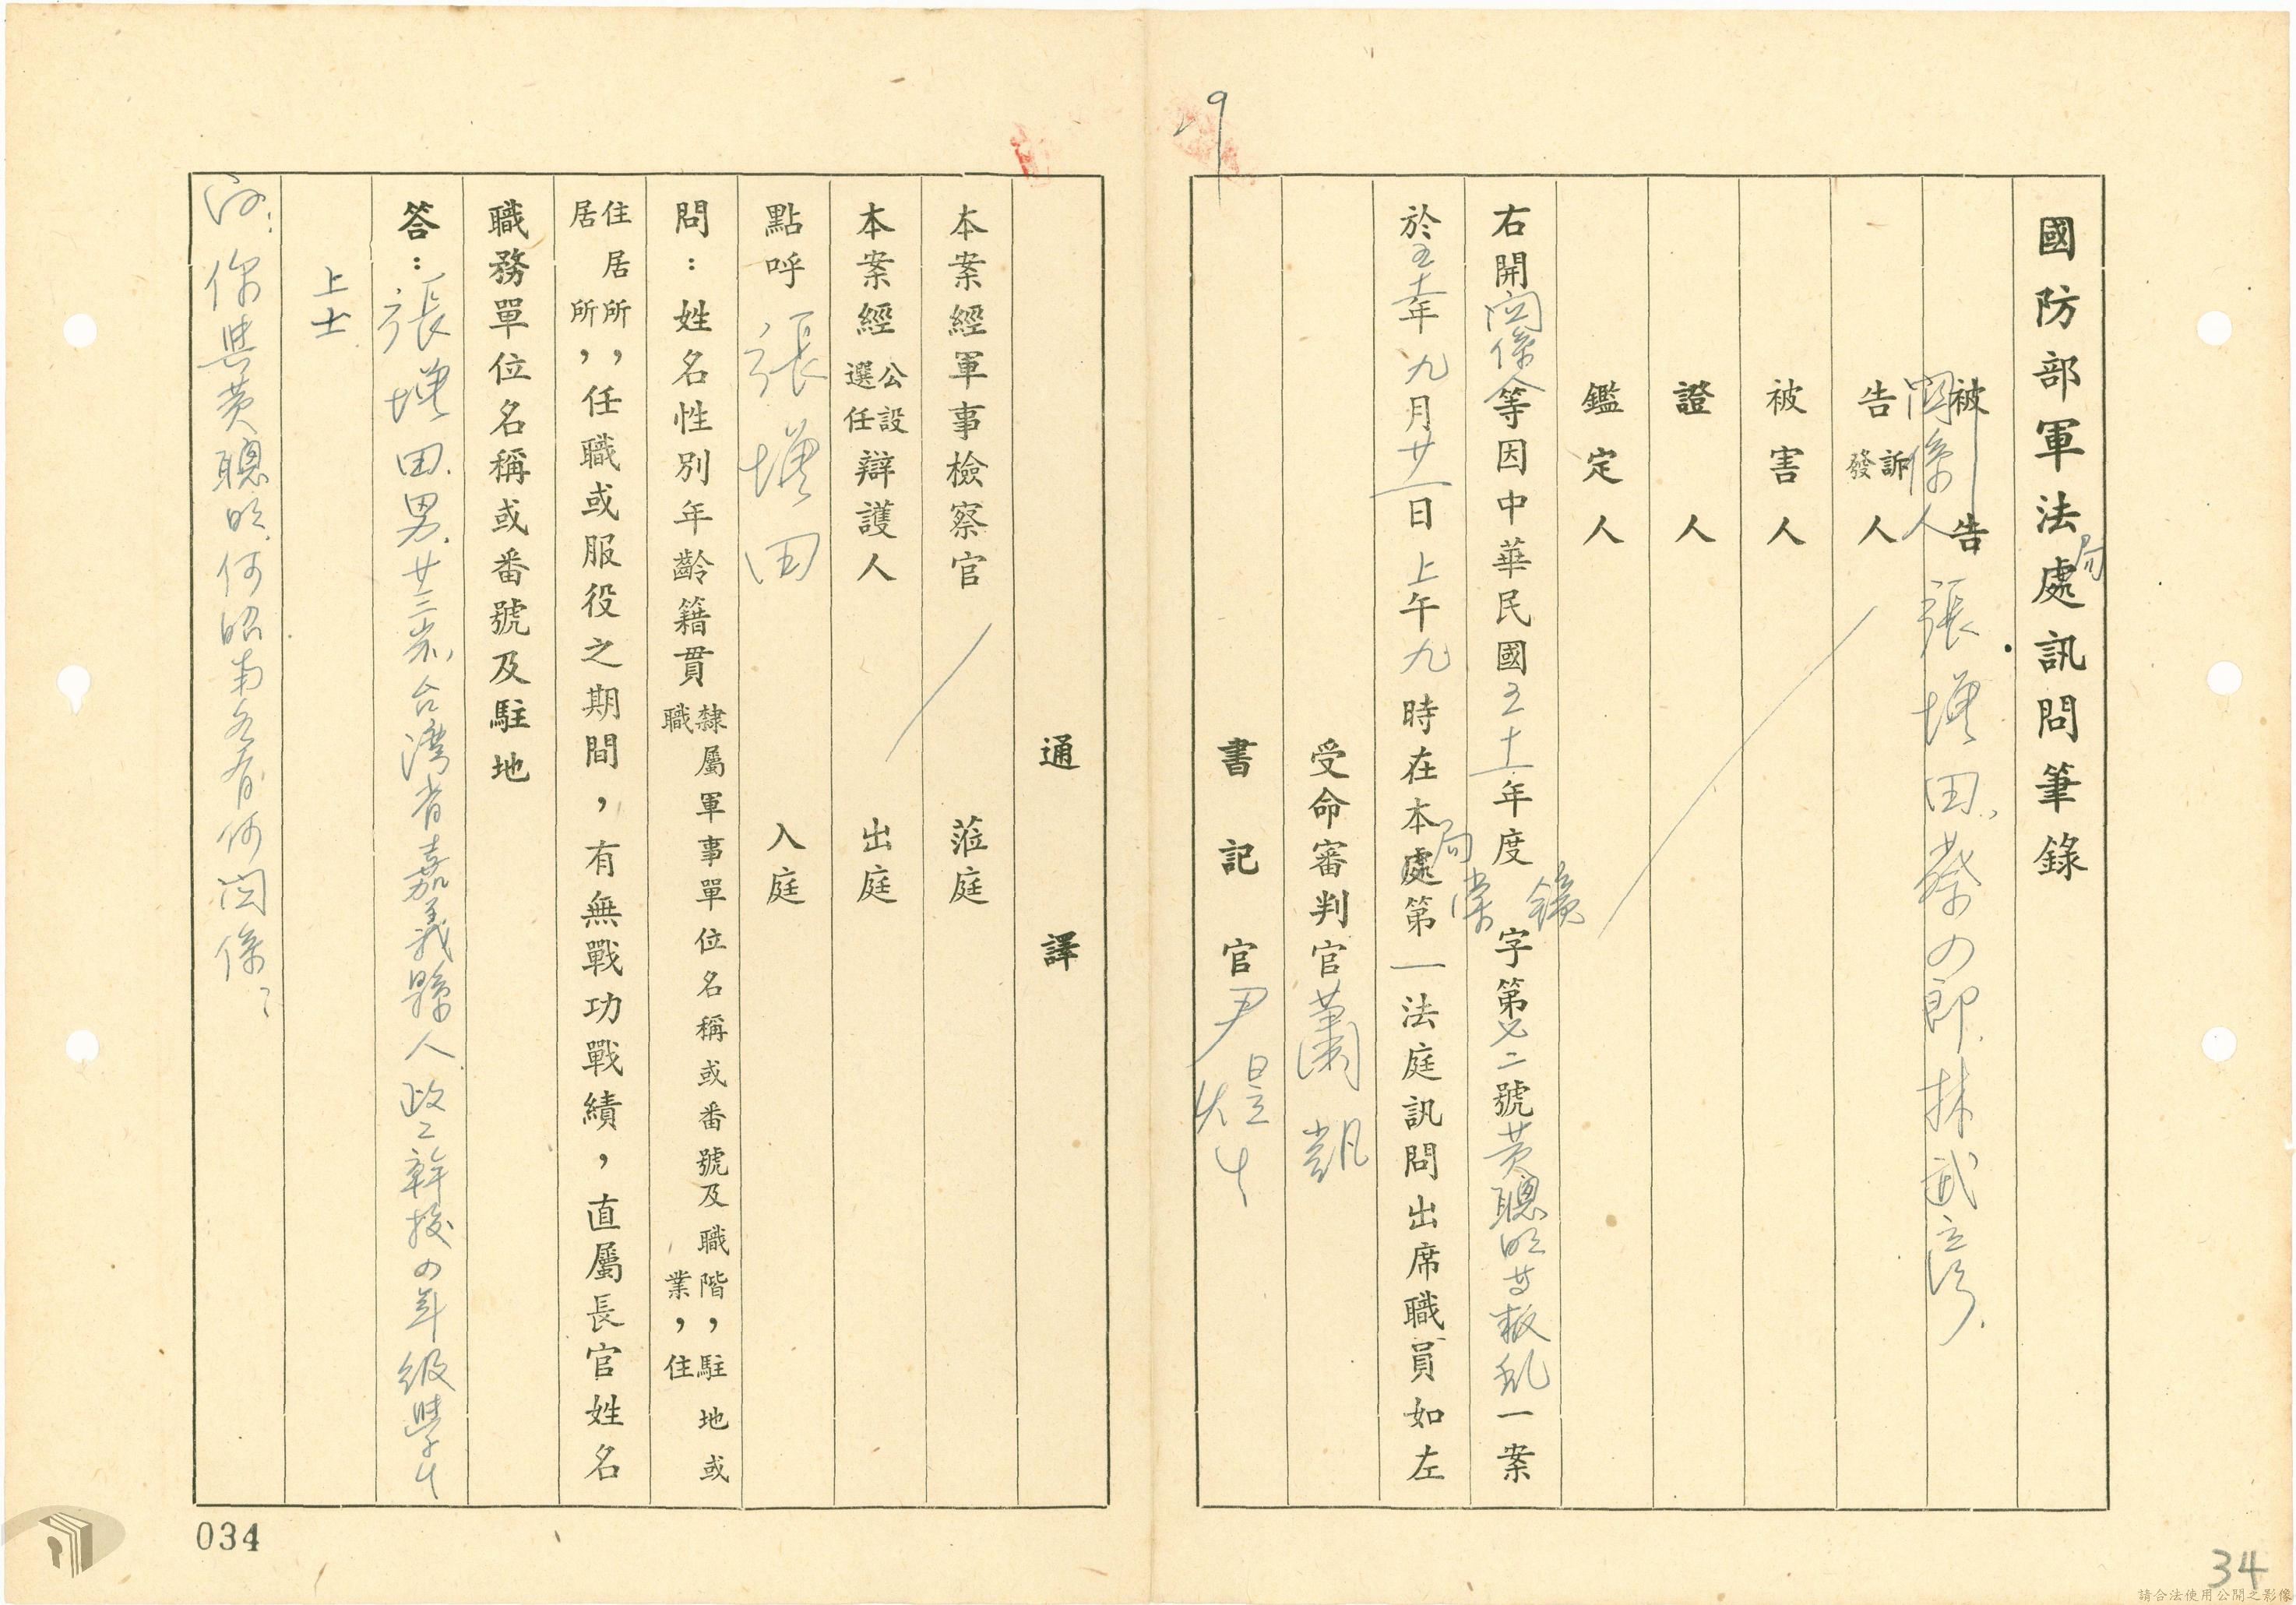 國防部軍法處訊問筆錄
局
被告
關係人 張墣田、蔡四郎、林武彥
告訴發人
被害人
證人
鑑定人
右開關係人等因中華民國五十一年度 字第 二號黃聰明等叛乱一案
於五十一年九月廿一日上午九時在本處第一法庭訊問出席職員如左
局
受命審判官蕭凱
書記官尹煜生
通譯
本案經軍事檢察官 蒞庭
本案經公設選任辯護人 出庭
點呼 張墣田 入庭
問：姓名性別年齡籍貫隸屬軍事單位名稱或番號及職階，駐地或職業，住
居所，任職或服役之期間，有無戰功戰績，直屬長官姓名
住居所，
職務單位名稱或番號及駐地
答：張墣田、男、廿三岁、台灣省嘉義縣人、政工幹校四年級學生
上士
問：你與黃聰明、何昭南各有何関係？
034
34
請合法使用公開之影像